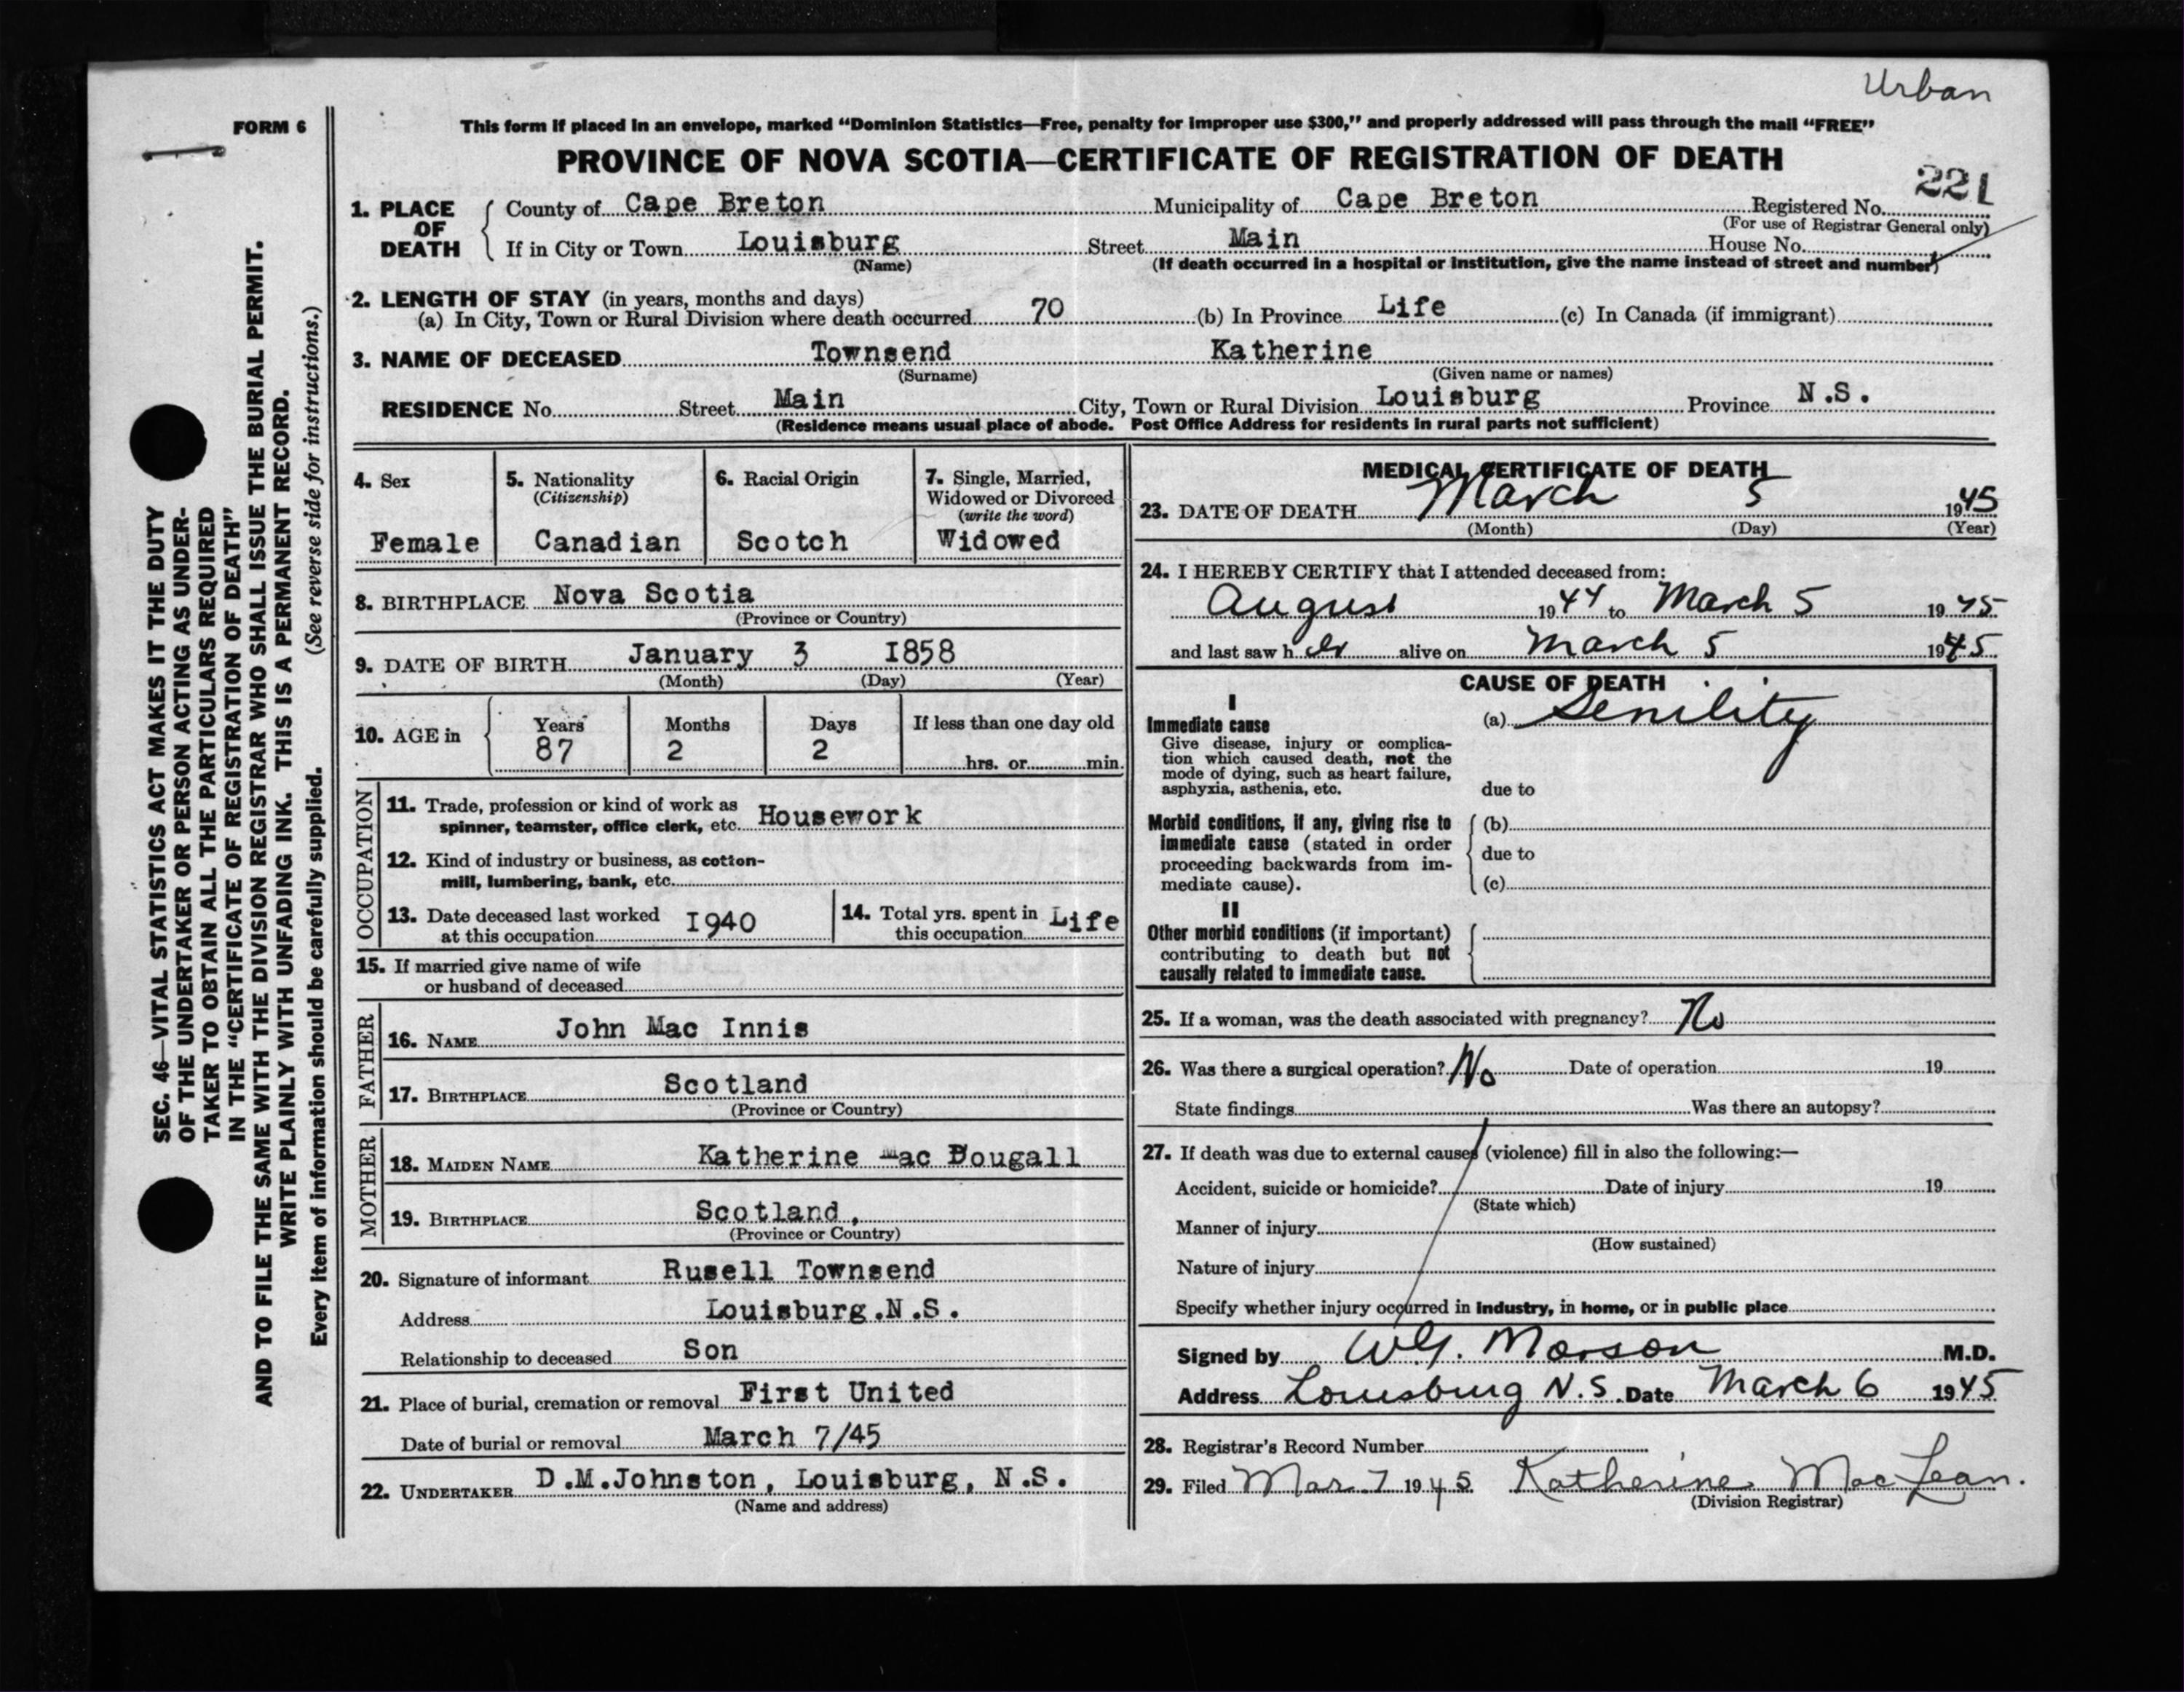 Urban
FORM 6
This form if placed in an envelope, marked “Dominion Statistics—Free, penalty for improper use $300,” and properly addressed will pass through the mail “FREE”
PROVINCE OF NOVA SCOTIA—CERTIFICATE OF REGISTRATION OF DEATH
221
1. PLACE OF DEATH { County of Cape Breton Municipality of Cape Breton Registered No.
(For use of Registrar General only)
If in City or Town Louisburg Street Main House No.
(Name) (If death occurred in a hospital or institution, give the name instead of street and number)
2. LENGTH OF STAY (in years, months and days)
(a) In City, Town or Rural Division where death occurred 70 (b) In Province Life (c) In Canada (if immigrant)
3. NAME OF DECEASED Townsend Katherine
(Surname) (Given name or names)
RESIDENCE No. Street Main City, Town or Rural Division Louisburg Province N.S.
(Residence means usual place of abode. Post Office Address for residents in rural parts not sufficient)
4. Sex 5. Nationality 6. Racial Origin 7. Single, Married,
(Citizenship) Widowed or Divorced
(write the word)
Female Canadian Scotch Widowed
8. BIRTHPLACE Nova Scotia
(Province or Country)
9. DATE OF BIRTH January 3 1858
(Month) (Day) (Year)
10. AGE in { Years Months Days If less than one day old
87 2 2 hrs. or min.
OCCUPATION
11. Trade, profession or kind of work as
spinner, teamster, office clerk, etc. Housework
12. Kind of industry or business, as cotton-
mill, lumbering, bank, etc.
13. Date deceased last worked
at this occupation 1940
14. Total yrs. spent in
this occupation Life
15. If married give name of wife
or husband of deceased
FATHER
16. NAME John Mac Innis
17. BIRTHPLACE Scotland
(Province or Country)
MOTHER
18. MAIDEN NAME Katherine Mac Dougall
19. BIRTHPLACE Scotland,
(Province or Country)
20. Signature of informant Rusell Townsend
Address Louisburg.N.S.
Relationship to deceased Son
21. Place of burial, cremation or removal First United
Date of burial or removal March 7/45
22. UNDERTAKER D.M.Johnston, Louisburg, N.S.
(Name and address)
MEDICAL CERTIFICATE OF DEATH
23. DATE OF DEATH March 5 1945
(Month) (Day) (Year)
24. I HEREBY CERTIFY that I attended deceased from:
August 1944 to March 5 1945
and last saw her alive on March 5 1945
CAUSE OF DEATH
I
Immediate cause
Give disease, injury or complica-
tion which caused death, not the
mode of dying, such as heart failure,
asphyxia, asthenia, etc.
(a) Senility
due to
Morbid conditions, if any, giving rise to
immediate cause (stated in order
proceeding backwards from im-
mediate cause).
(b)
due to
(c)
II
Other morbid conditions (if important)
contributing to death but not
causally related to immediate cause.
25. If a woman, was the death associated with pregnancy? No
26. Was there a surgical operation? No Date of operation 19
State findings Was there an autopsy?
27. If death was due to external causes (violence) fill in also the following:—
Accident, suicide or homicide? Date of injury 19
(State which)
Manner of injury
(How sustained)
Nature of injury
Specify whether injury occurred in industry, in home, or in public place
Signed by W.G. Morson M.D.
Address Louisburg N.S. Date March 6 1945
28. Registrar's Record Number
29. Filed Mar. 7 1945 Katherine MacLean.
(Division Registrar)
SEC. 46—VITAL STATISTICS ACT MAKES IT THE DUTY
OF THE UNDERTAKER OR PERSON ACTING AS UNDER-
TAKER TO OBTAIN ALL THE PARTICULARS REQUIRED
IN THE “CERTIFICATE OF REGISTRATION OF DEATH”
AND TO FILE THE SAME WITH THE DIVISION REGISTRAR WHO SHALL ISSUE THE BURIAL PERMIT.
WRITE PLAINLY WITH UNFADING INK. THIS IS A PERMANENT RECORD.
Every item of information should be carefully supplied. (See reverse side for instructions.)